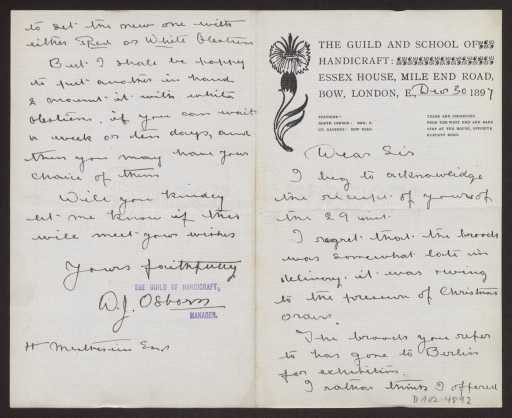 THE GUILD AND SCHOOL OF
HANDICRAFT:
ESSEX HOUSE, MILE END ROAD,
BOW, LONDON, E. Dec 30 1897
Dear Sir
I beg to acknowledge
the receipt of yours of
the 29 inst.
I regret that the brooch
was somewhat late in
delivery. it was owing
to the pressure of Christmas
orders.
The brooch you refer
to has gone to Berlin
for exhibition.
I rather think I offered
D102-4892
to set the new one with
either Red or White blisters
But I shall be happy
to put another in hand
& mount it with white
blisters, if you can wait
a week or ten days, and
then you may have your
choice of them
Will you kindly
let me know if this
will meet your wishes
Yours faithfully
THE GUILD OF HANDICRAFT,
A. J. Osborn
MANAGER.
H Muthesius Esqr